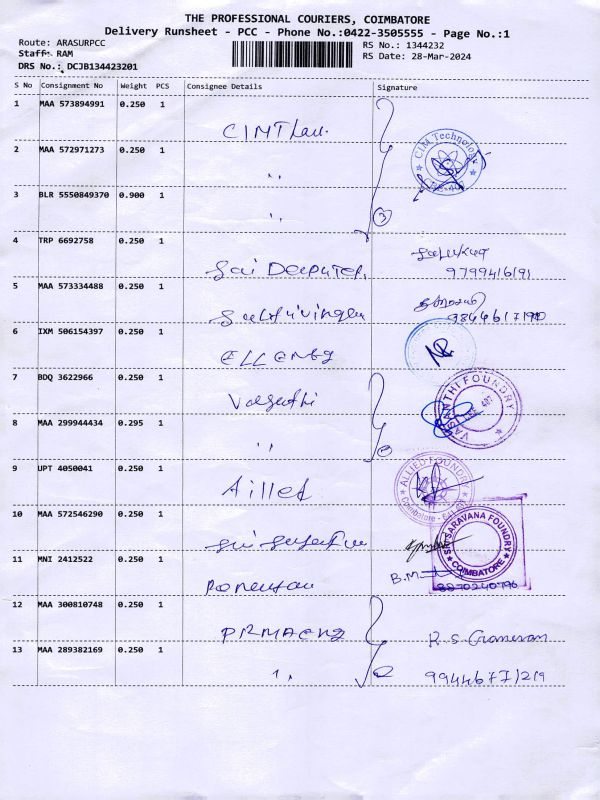 THE PROFESSIONAL COURIERS, COIMBATORE
Delivery Runsheet - PCC - Phone No.:0422-3505555 - Page No.:1
Route: ARASURPCC RS No.: 1344232
Staff: RAM RS Date: 28-Mar-2024
DRS No.: DCJB134423201
S No Consignment No Weight PCS Consignee Details Signature
1 MAA 573894991 0.250 1
CIMTLau.
2 MAA 572971273 0.250 1 CIM Technology
"
3 BLR 5550849370 0.900 1
" 3
4 TRP 6692758 0.250 1
Sai 9799416191
5 MAA 573334488 0.250 1
6 IXM 506154397 0.250 1
7 BDQ 3622966 0.250 1 VASANTHI FOUNDRY
8 MAA 299944434 0.295 1
" 2
9 UPT 4050041 0.250 1 ALLIED FOUNDRY
Coimbatore
10 MAA 572546290 0.250 1 SARAVANA FOUNDRY
COIMBATORE
11 MNI 2412522 0.250 1 B.M
8870240796
12 MAA 300810748 0.250 1
R.S.
13 MAA 289382169 0.250 1
" 2 9944677219